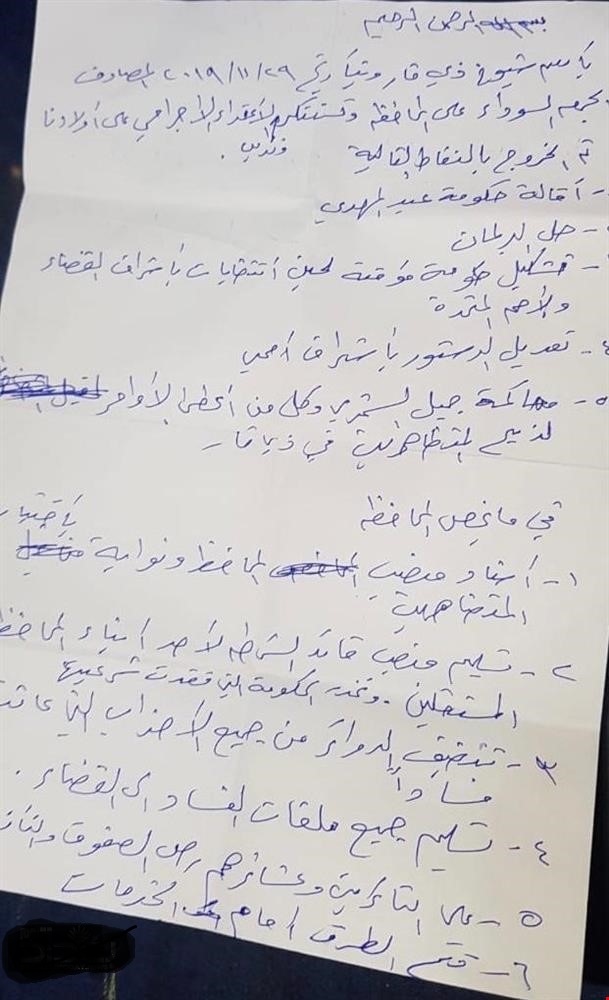 بسم الله الرحمن الرحيم
بأسم شيوخ ذي قار وبتأريخ ٢٠١٩/١١/٢٩ المصادف
لجمعه السوداء على المحافظه ونستنكر الأعتداء الأجرامي على أولادنا
تم الخروج بالنقاط التالية
- أقالة حكومة عبد المهدي
- حل البرلمان
- تشكيل حكومة مؤقتة لحين انتخابات بأشراف القضاء
والأمم المتحدة
٤- تعديل الدستور بأشراف أممي
٥- محاكمة جميل الشمري وكل من أعطى الأوامر
لذبح المتظاهرين في ذي قار
في ما يخص المحافظه
١- أسناد منصب المحافظ ونوابه بأختيار
المتظاهرين
٢- تسليم منصب قائد الشرطه لأحد أبناء المحافظ
المستقلين . ونحذر الحكومة التي فقدت شرعيتها
٣- تنظيف الدوائر من جميع الأحزاب التي عاثت
فساداً
٤- تسليم جميع ملفات الفساد الى القضاء .
٥- على الثائرين وعشائرهم رص الصفوف
٦- فتح الطرق امام الخدمات